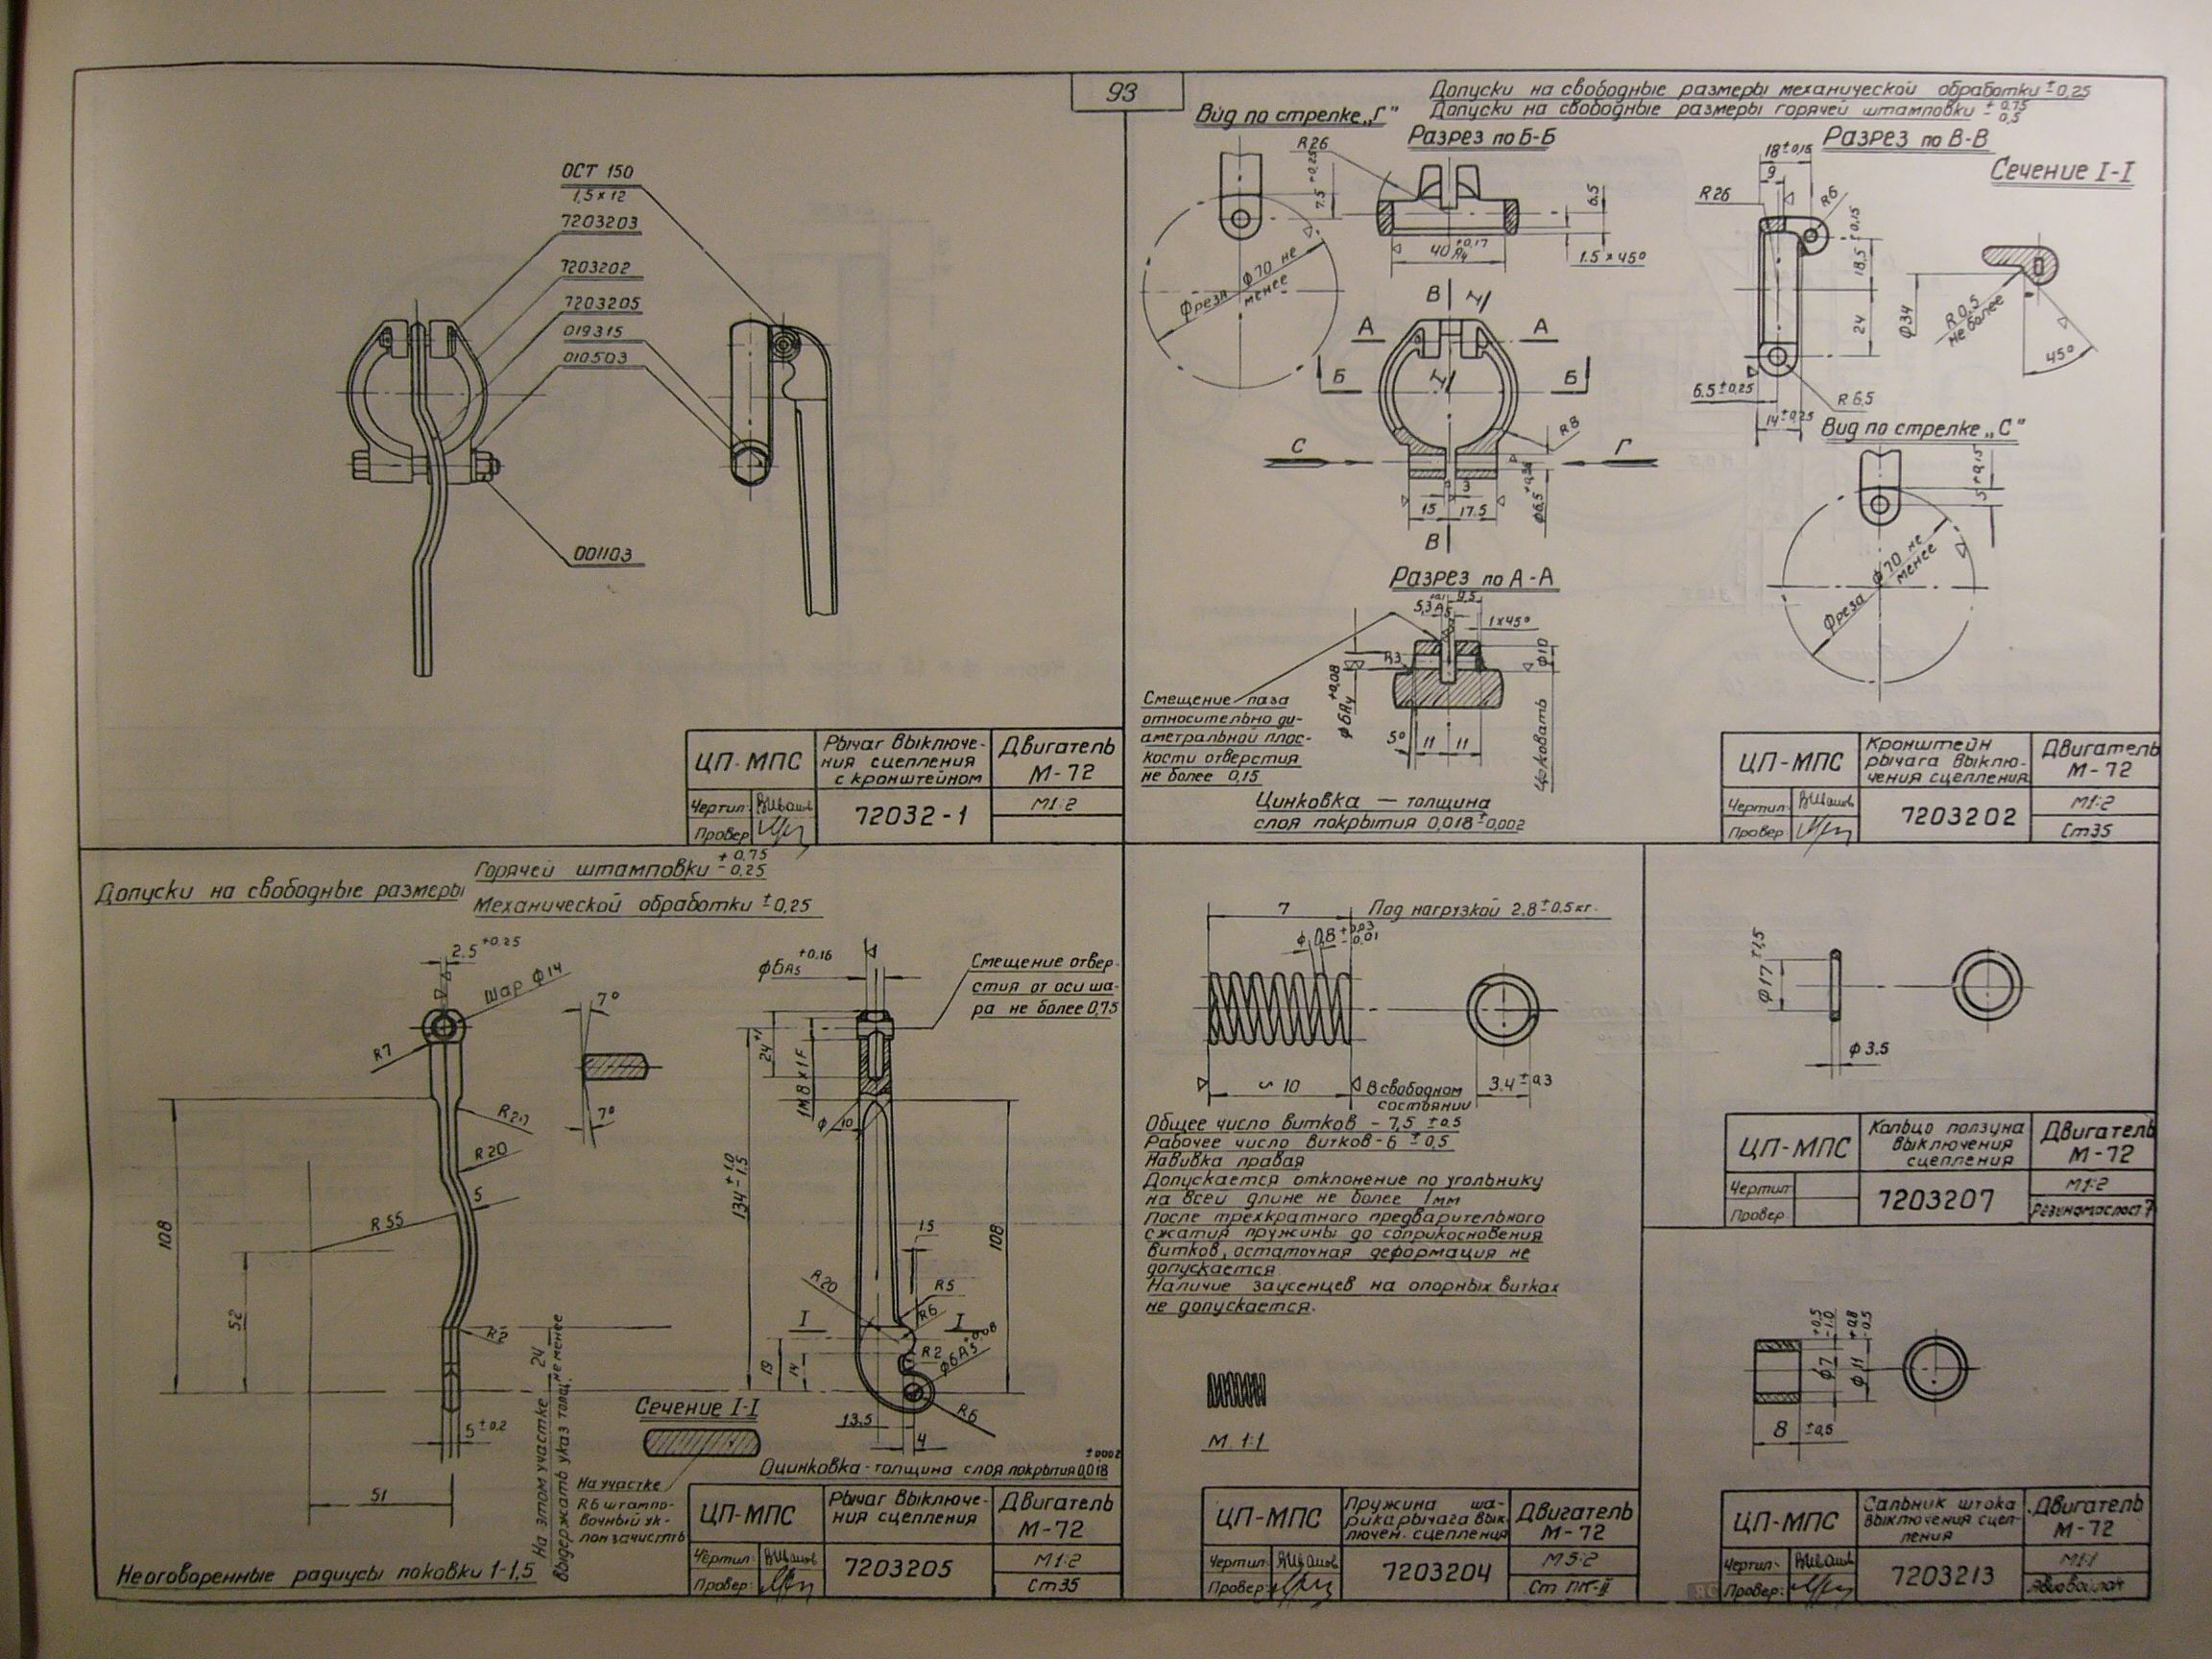 93
ОСТ 150
1,5×12
7203203
7203202
7203205
019315
010503
001103
ЦП-МПС
Рычаг выключе-
ния сцепления
с кронштейном
Двигатель
М-72
Чертил:
Провер
72032-1
М1:2
Допуски на свободные размеры механической обработки ±0,25
Допуски на свободные размеры горячей штамповки + 0,75 - 0,5
Вид по стрелке „Г"
Разрез по Б-Б
Разрез по В-В
Сечение I-I
R26
7.5 +0,25
6.5
40 А4 +0,17
1.5×45°
Фреза ф70 не
менее
18±0,15
9
R26
R6
18,5 ±0,15
24
ф34
R0.5
не более
45°
6.5±0,25
14±0,25
R6,5
В
I
А
А
Б
Б
I
R8
С
Г
3
15
17.5
В
Вид по стрелке „С"
5±0,15
Фреза ф70 не
менее
Разрез по А-А
5,3А5
9,5
1×45°
R3
ф10
ф6А4 +0,08
5°
11
11
Цековать
Смещение паза
относительно ди-
аметральной плос-
кости отверстия
не более 0,15
Цинковка — толщина
слоя покрытия 0,018±0,002
ЦП-МПС
Кронштейн
рычага выклю-
чения сцепления
Двигатель
М-72
Чертил:
Провер
7203202
М1:2
Ст35
Допуски на свободные размеры
Горячей штамповки + 0,75 - 0,25
Механической обработки ±0,25
2.5 +0.25
Шар ф14
R7
7°
7°
R20
5
R55
108
52
R2
5±0,2
51
На этом участке 24
выдержать указ толщ. не менее
ф6А5 +0.16
Смещение отвер-
стия от оси ша-
ра не более 0,75
24+1
1М8×1F
ф10
134 +1.0 -1.5
15
108
R20
R5
R6
I
I
R2
ф6А5 +0,08
19
14
13.5
4
R6
Сечение I-I
На участке
R6 штампо-
вочный ук-
лон зачистить
Оцинковка-толщина слоя покрытия 0,018 ±0002
Неоговоренные радиусы поковки 1-1,5
ЦП-МПС
Рычаг выключе-
ния сцепления
Двигатель
М-72
Чертил:
Провер:
7203205
М1:2
Ст35
7
Под нагрузкой 2.8±0.5кг.
ф0,8 +0,03 -0,01
∽10
В свободном
состоянии
3.4±0,3
Общее число витков - 7,5 ±0,5
Рабочее число витков-6 ±0,5
Навивка правая
Допускается отклонение по угольнику
на всей длине не более 1мм
После трехкратного предварительного
сжатия пружины до соприкосновения
витков, остаточная деформация не
допускается.
Наличие заусенцев на опорных витках
не допускается.
М 1:1
ЦП-МПС
Пружина ша-
рика рычага вык-
лючен. сцепления
Двигатель
М-72
Чертил:
Провер:
7203204
М5:2
Ст ПК-II
ф17 ±1,5
ф3.5
ЦП-МПС
Кольцо ползуна
выключения
сцепления
Двигатель
М-72
Чертил
Провер.
7203207
М1:2
ф7 +0,5 -1.0
ф11 +0,8 -0.5
8 ±0,5
ЦП-МПС
Сальник штока
выключения сцеп-
ления
Двигатель
М-72
Чертил:
Провер:
7203213
М1:1
Авиавойлок